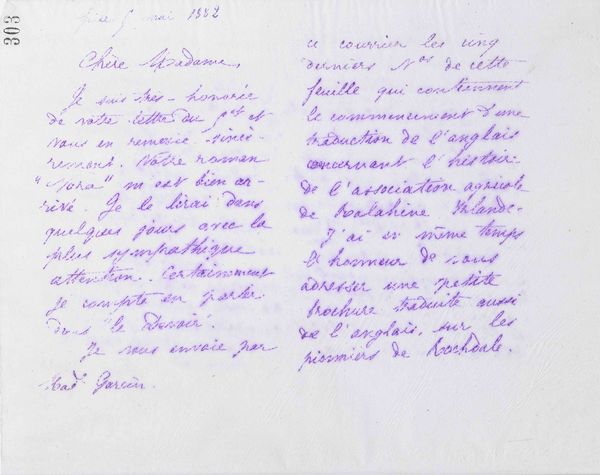 303
mai 1882
Chère Madame,
Je suis très-honorée
de votre lettre du 1er et
vous en remercie sincè-
rement. Votre roman
"Nora" m'est bien ar-
rivé. Je le lirai dans
quelques jours avec la
plus sympathique
attention. Certainement
je compte en parler
dans le Devoir.
Je vous envoie par
Mad. Garcin.
ce courrier les cinq
derniers Nos de cette
feuille qui contiennent
le commencement d'une
traduction de l'anglais
concernant l'histoire
de l'association agricole
de Ralahine. Irlande.
J'ai en même temps
l'honneur de vous
adresser une petite
brochure traduite aussi
de l'anglais, sur les
pionniers de Rochdale.